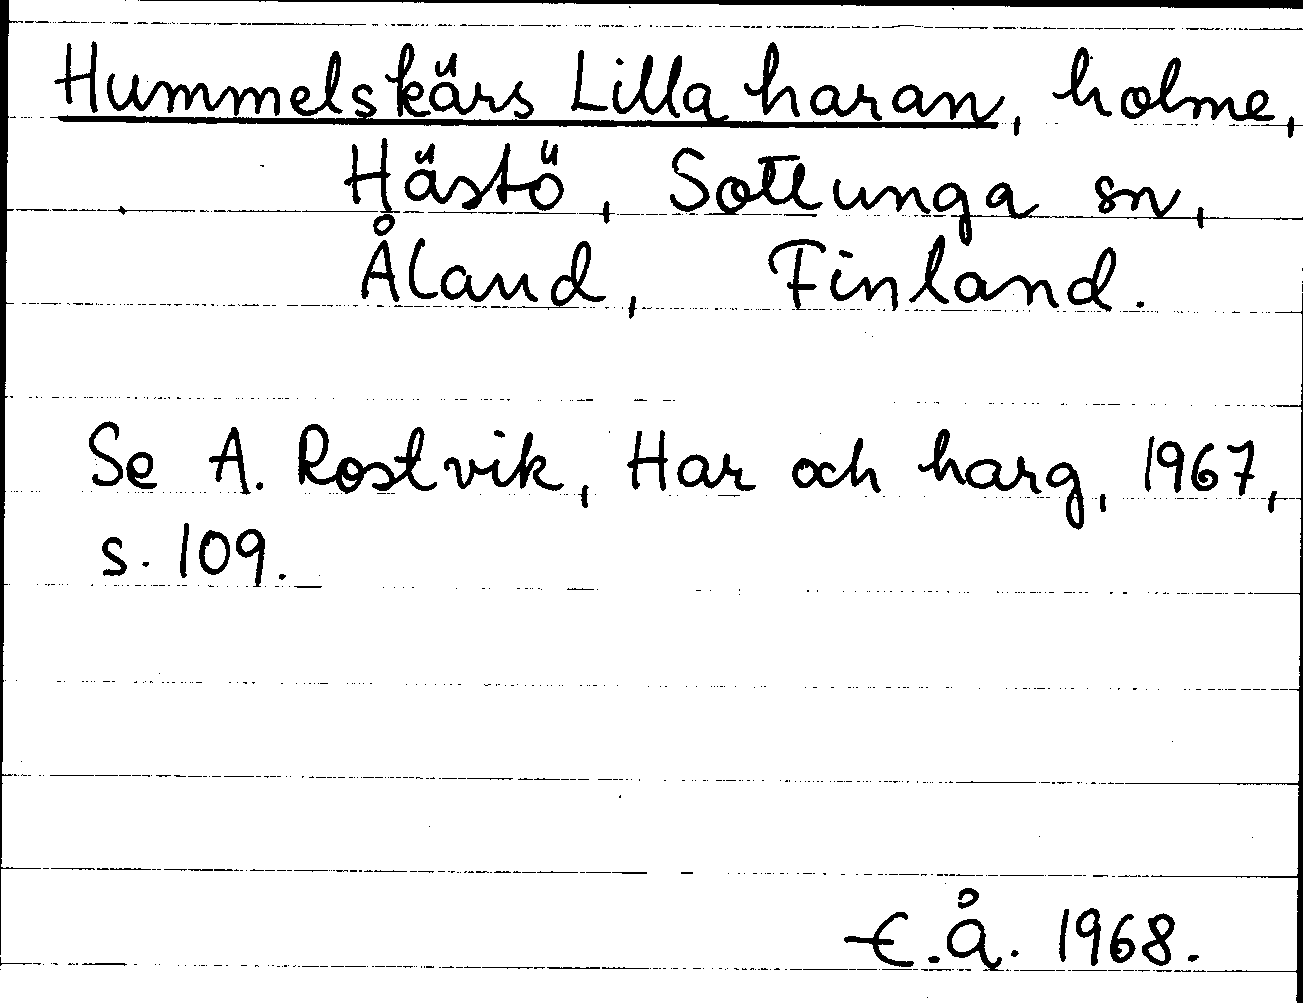 Hummelskärs Lilla haran, holme,
Hästö, Sottunga sn,
Åland, Finland.
Se A. Rostvik, Har och harg, 1967,
s. 109.
E.Å. 1968.